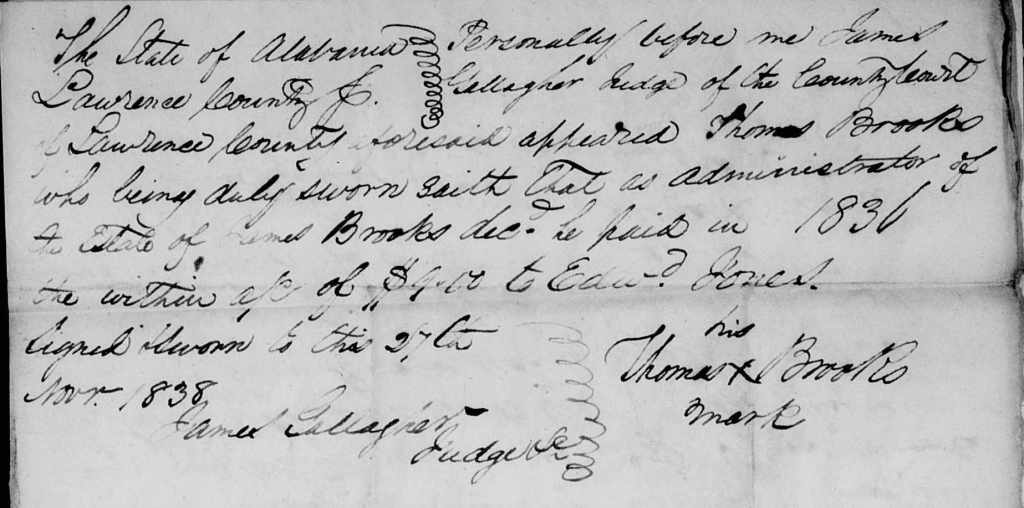 The State of Alabama Personally before me James
Lawrence County Gallagher Judge of the County Court
of Lawrence County aforesaid appeared Thomas Brooks
who being duly sworn saith that as administrator of
the Estate of James Brooks decd. he paid in 1836
the within a/c of $9.00 to Edwd. Jones.
Signed & Sworn to this 27th his
Novr. 1838 Thomas X Brooks
James Gallagher mark
Judge &c